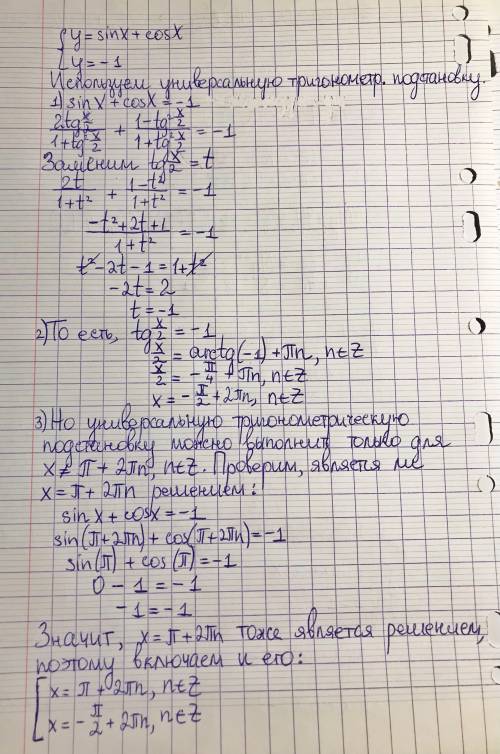 { y = sinx + cosx
{ y = -1
Используем универсальную тригонометр. подстановку.
1) sinx + cosx = -1
2tg x/2 / 1+tg² x/2 + 1-tg² x/2 / 1+tg² x/2 = -1
Заменим tg x/2 = t
2t / 1+t² + 1-t² / 1+t² = -1
-t²+2t+1 / 1+t² = -1
t² - 2t - 1 = 1 + t²
-2t = 2
t = -1
2) То есть, tg x/2 = -1
x/2 = arctg(-1) + πn, n∈Z
x/2 = -π/4 + πn, n∈Z
x = -π/2 + 2πn, n∈Z
3) Но универсальную тригонометрическую
подстановку можно выполнить только для
x ≠ π + 2πn, n∈Z. Проверим, является ли
x = π + 2πn решением:
sinx + cosx = -1
sin(π+2πn) + cos(π+2πn) = -1
sin(π) + cos(π) = -1
0 - 1 = -1
-1 = -1
Значит, x = π + 2πn тоже является решением,
поэтому включаем и его:
[ x = π + 2πn, n∈Z
[ x = -π/2 + 2πn, n∈Z